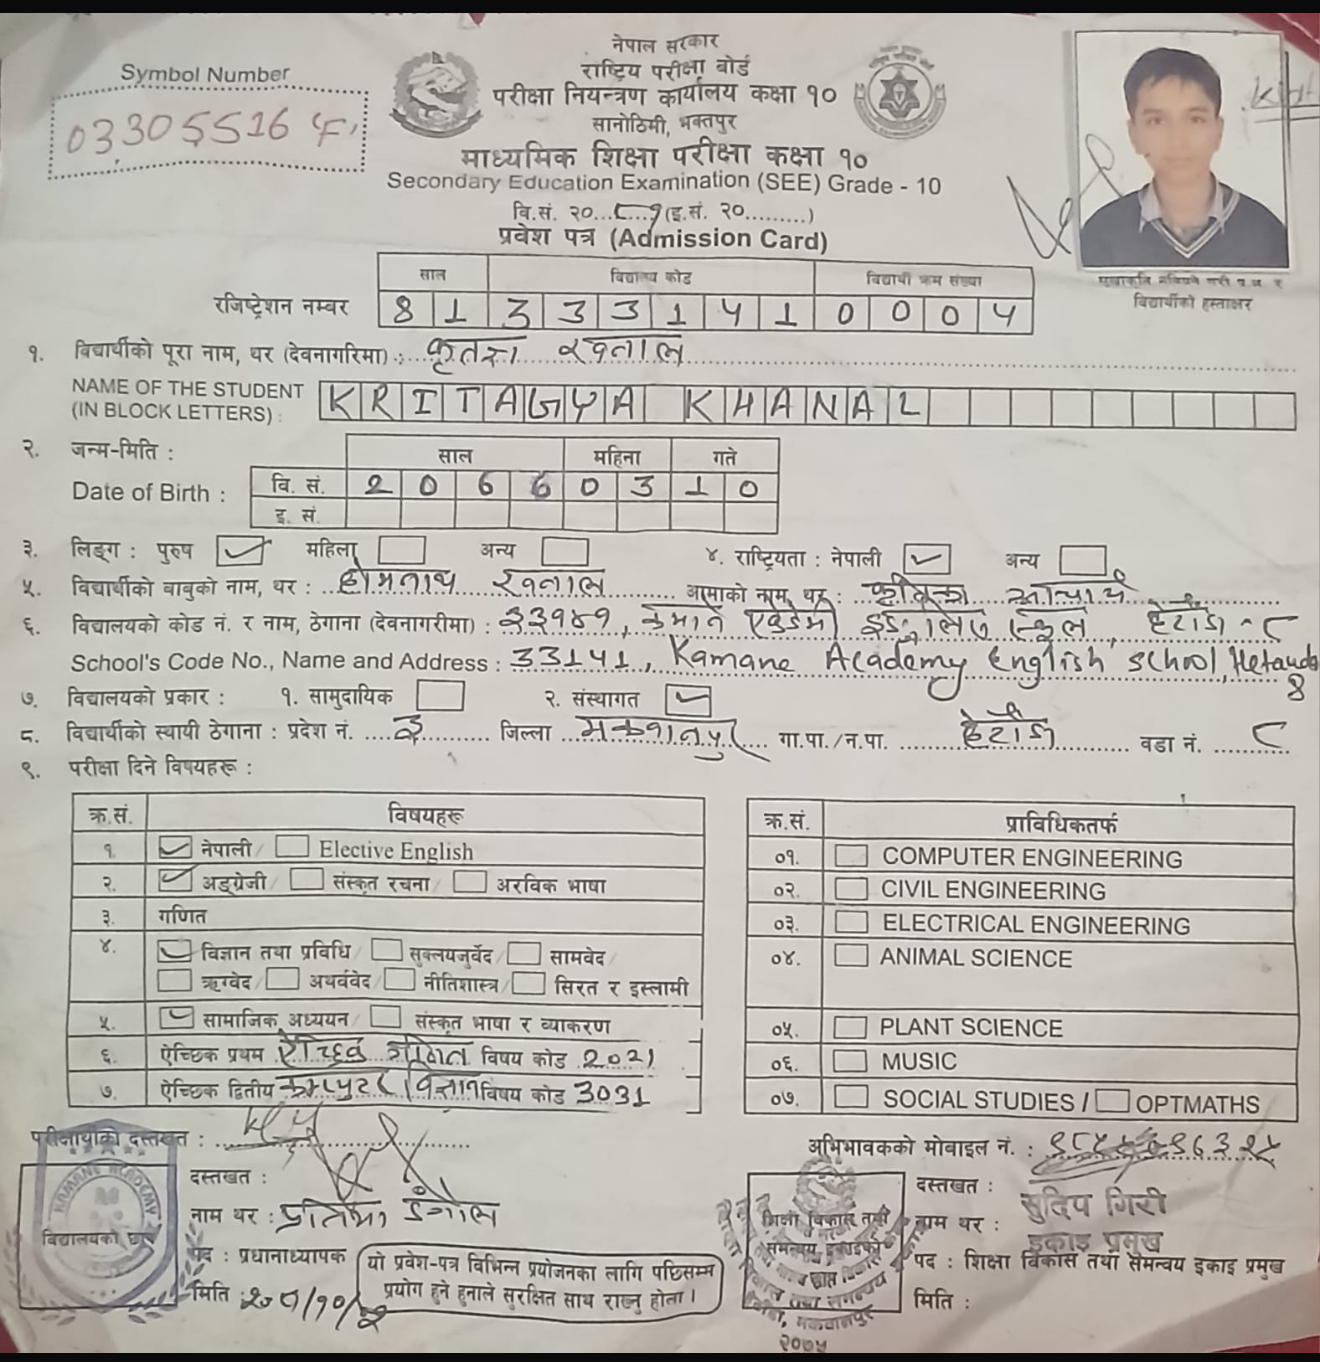 नेपाल सरकार
राष्ट्रिय परीक्षा बोर्ड
परीक्षा नियन्त्रण कार्यालय कक्षा १०
सानोठिमी, भक्तपुर
माध्यमिक शिक्षा परीक्षा कक्षा १०
Secondary Education Examination (SEE) Grade - 10
वि.सं. २०...८१(इ.सं. २०.........)
प्रवेश पत्र (Admission Card)
Symbol Number
03305516
विद्यार्थीको हस्ताक्षर
साल विद्यालय कोड विद्यार्थी क्रम संख्या
रजिष्ट्रेशन नम्बर 8 1 3 3 3 1 4 1 0 0 0 4
१. विद्यार्थीको पूरा नाम, थर (देवनागरिमा) : कृतज्ञ खनाल
NAME OF THE STUDENT
(IN BLOCK LETTERS) : KRITAGYA KHANAL
२. जन्म-मिति : साल महिना गते
Date of Birth : वि. सं. 2 0 6 6 0 3 1 0
इ. सं.
३. लिङ्ग : पुरुष महिला अन्य ४. राष्ट्रियता : नेपाली अन्य
५. विद्यार्थीको बाबुको नाम, थर : होमनाथ खनाल आमाको नाम, थर :
६. विद्यालयको कोड नं. र नाम, ठेगाना (देवनागरीमा) : ३३१४१, कमाने एकेडेमी इङ्लिस स्कूल, हेटौंडा - ८
School's Code No., Name and Address : 33141, Kamane Academy English School, Hetauda
8
७. विद्यालयको प्रकार : १. सामुदायिक २. संस्थागत
८. विद्यार्थीको स्थायी ठेगाना : प्रदेश नं. ३ जिल्ला मकवानपुर गा.पा./न.पा. हेटौंडा वडा नं. ८
९. परीक्षा दिने विषयहरू :
क्र.सं. विषयहरू
१. नेपाली/ Elective English
२. अङ्ग्रेजी/ संस्कृत रचना/ अरविक भाषा
३. गणित
४. विज्ञान तथा प्रविधि/ सुक्लयजुर्वेद/ सामवेद/
ऋग्वेद/ अथर्ववेद/ नीतिशास्त्र/ सिरत र इस्लामी
५. सामाजिक अध्ययन/ संस्कृत भाषा र व्याकरण
६. ऐच्छिक प्रथम ऐच्छिक गणित विषय कोड 2021
७. ऐच्छिक द्वितीय कम्प्युटर विज्ञान विषय कोड 3031
क्र.सं. प्राविधिकतर्फ
०१. COMPUTER ENGINEERING
०२. CIVIL ENGINEERING
०३. ELECTRICAL ENGINEERING
०४. ANIMAL SCIENCE
०५. PLANT SCIENCE
०६. MUSIC
०७. SOCIAL STUDIES / OPTMATHS
परीक्षार्थीको दस्तखत :
दस्तखत :
नाम थर : प्रतिमा डंगोल
पद : प्रधानाध्यापक
मिति :
KAMANE ACADEMY
विद्यालयको छाप
यो प्रवेश-पत्र विभिन्न प्रयोजनका लागि पछिसम्म
प्रयोग हुने हुनाले सुरक्षित साथ राख्नु होला।
अभिभावकको मोबाइल नं. :
दस्तखत :
नाम थर : सुदिप गिरी
इकाइ प्रमुख
पद : शिक्षा विकास तथा समन्वय इकाइ प्रमुख
मिति :
शिक्षा विकास तथा
समन्वय इकाइको
छाप
मकवानपुर
२०७५